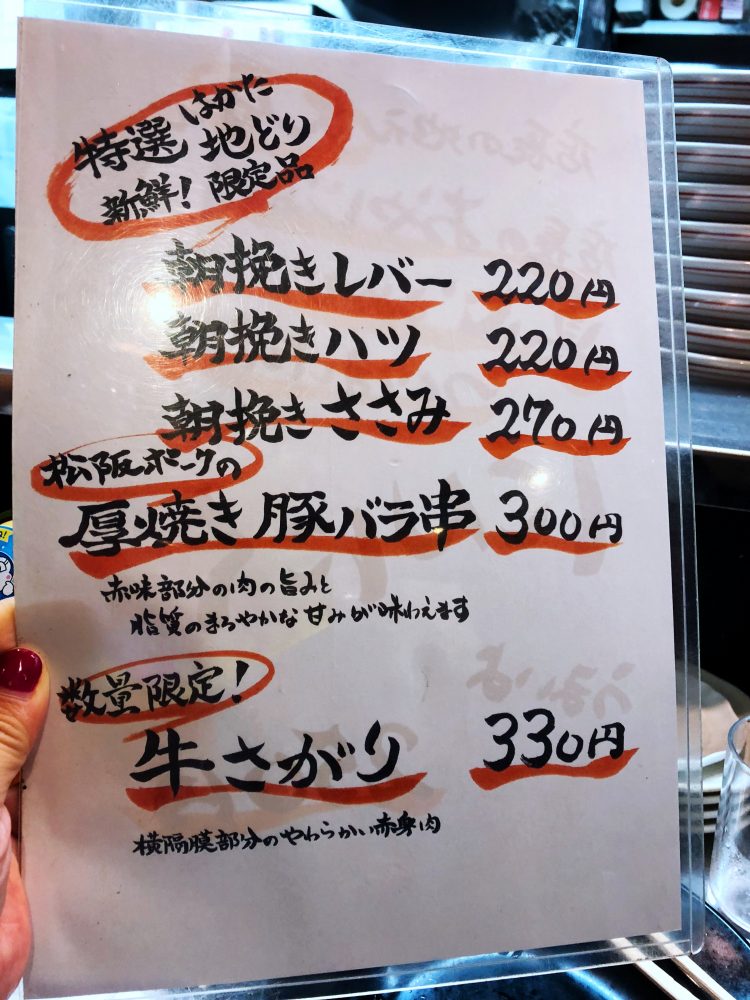 特選 はかた地どり
新鮮！限定品
朝挽きレバー 220円
朝挽きハツ 220円
朝挽きささみ 270円
松阪ポークの
厚焼き豚バラ串 300円
赤味部分の肉の旨みと
脂質のまろやかな甘みが味わえます
数量限定！
牛さがり 330円
横隔膜部分のやわらかい赤身肉